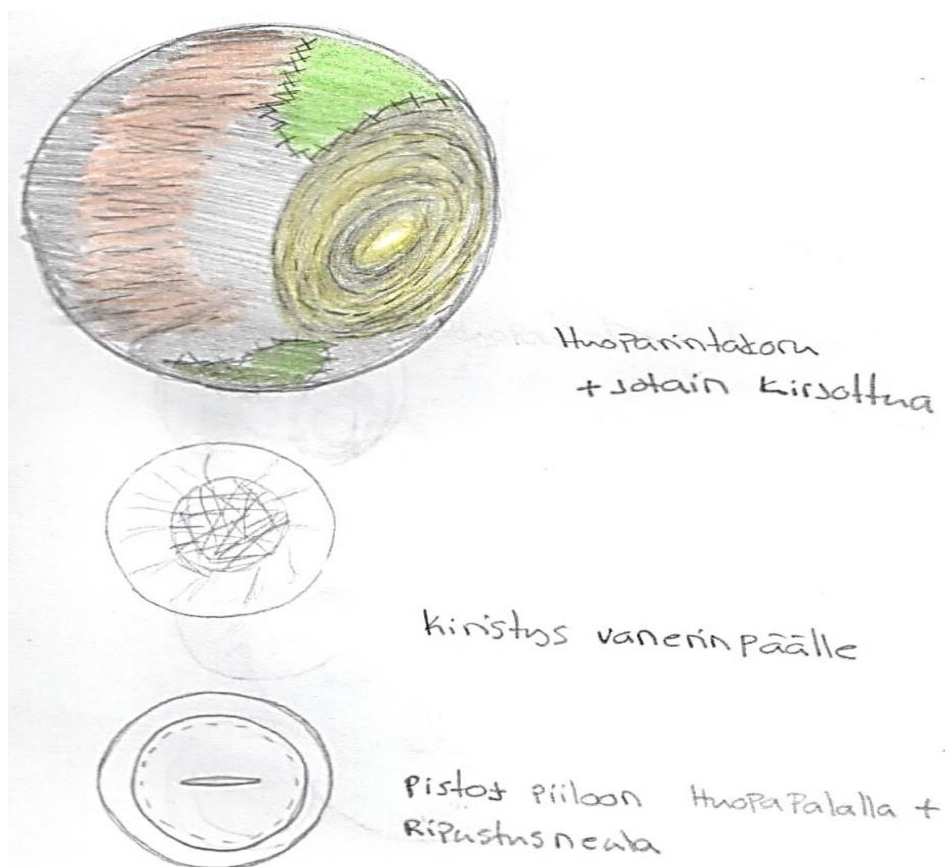 Huoparintakoru
+ jotain kirjottua
kiristys vanerin päälle
pistot piiloon Huopapalalla +
Ripustusneula